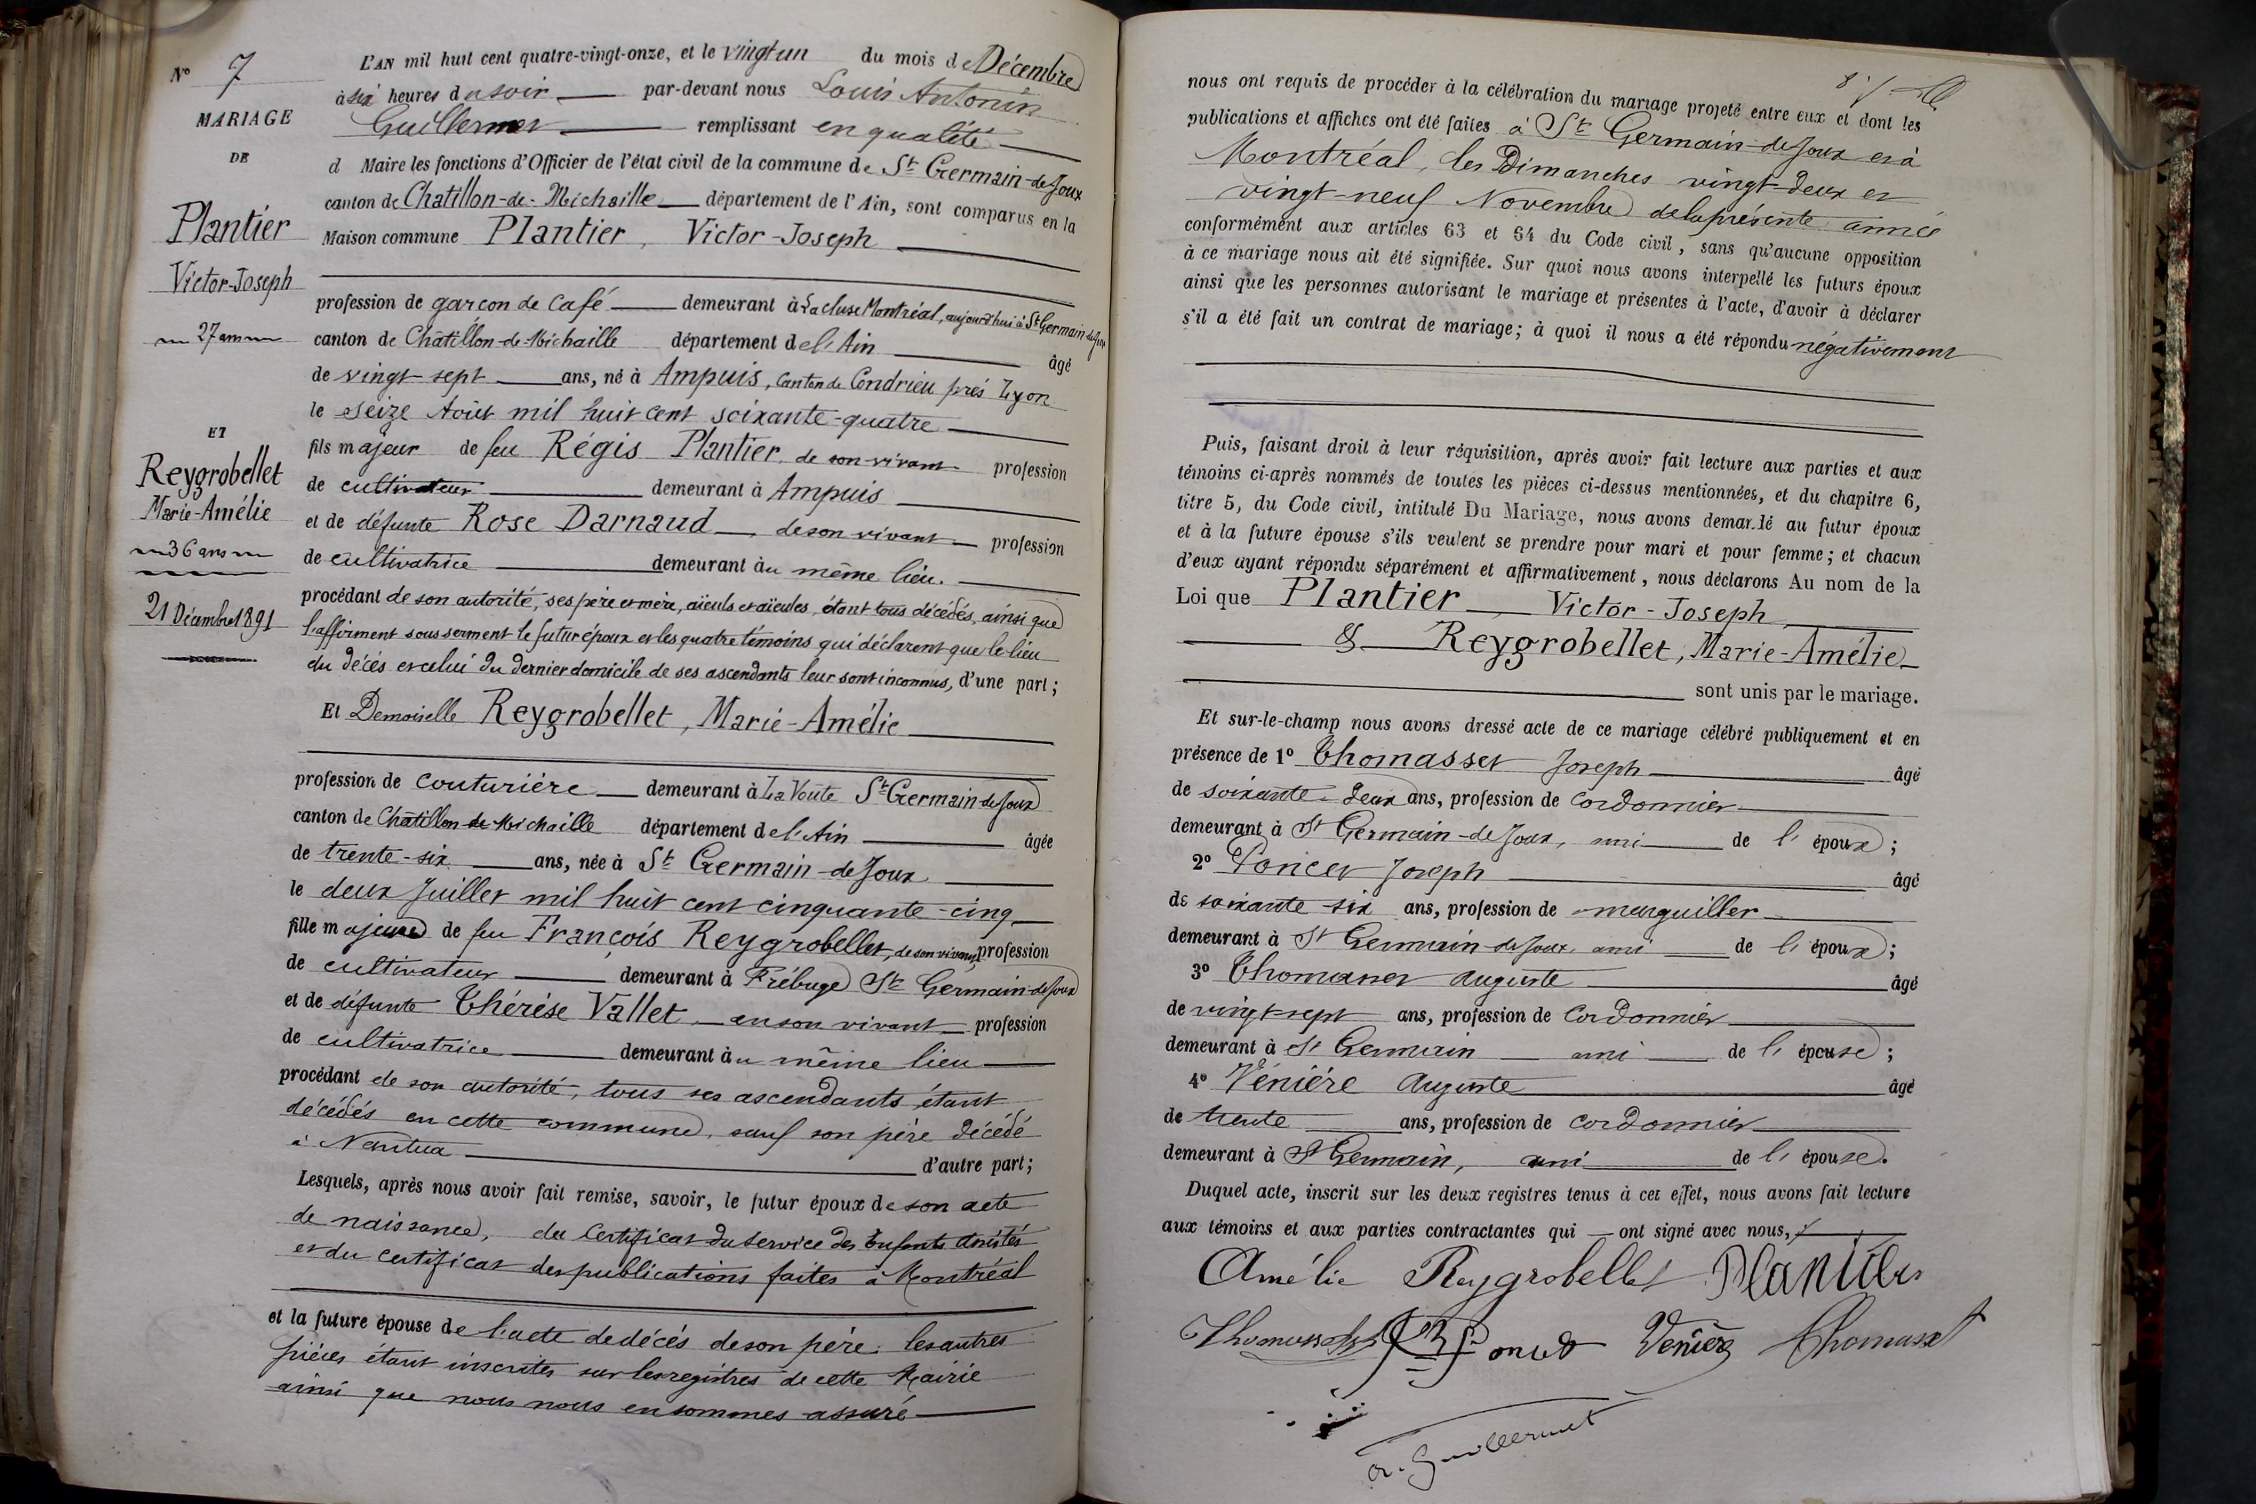 N° 7
MARIAGE
DE
Plantier
Victor-Joseph
27 ans
ET
Reygrobellet
Marie-Amélie
36 ans
21 Décembre 1891
L'AN mil huit cent quatre-vingt-onze, et le vingt un du mois de Décembre
à six heures du soir par-devant nous Louis Antonin
Guillermet remplissant en qualité
d Maire les fonctions d'Officier de l'état civil de la commune de St Germain-de-Joux
canton de Chatillon-de-Michaille département de l'Ain, sont comparus en la
Maison commune Plantier, Victor-Joseph
profession de garçon de Café demeurant à La cluse Montréal, aujourd'hui à St Germain-de-Joux
canton de Châtillon-de-Michaille département de l'Ain âgé
de vingt-sept ans, né à Ampuis, canton de Condrieu près Lyon
le seize Août mil huit cent soixante-quatre
fils majeur de feu Régis Plantier, de son vivant profession
de cultivateur demeurant à Ampuis
et de défunte Rose Darnaud de son vivant profession
de cultivatrice demeurant au même lieu.
procédant de son autorité, ses père et mère, aïeuls et aïeules, étant tous décédés, ainsi que
l'affirment sous serment le futur époux et les quatre témoins qui déclarent que le lieu
du décès et celui du dernier domicile de ses ascendants leur sont inconnus, d'une part;
Et Demoiselle Reygrobellet, Marie-Amélie
profession de couturière demeurant à La Voûte St Germain-de-Joux
canton de Châtillon-de-Michaille département de l'Ain âgée
de trente-six ans, née à St Germain-de-Joux
le deux Juillet mil huit cent cinquante-cinq
fille majeure de feu François Reygrobellet, de son vivant, profession
de cultivateur demeurant à Frébuge St Germain-de-Joux
et de défunte Thérèse Vallet en son vivant profession
de cultivatrice demeurant au même lieu
procédant de son autorité, tous ses ascendants étant
décédés en cette commune, sauf son père décédé
à Nantua d'autre part;
Lesquels, après nous avoir fait remise, savoir, le futur époux de son acte
de naissance, du Certificat du Service des Enfants Assistés
et du certificat des publications faites à Montréal
et la future épouse de l'acte de décès de son père; les autres
pièces étant inscrites sur les registres de cette Mairie
ainsi que nous nous en sommes assuré
nous ont requis de procéder à la célébration du mariage projeté entre eux et dont les
publications et affiches ont été faites à St Germain-de-Joux et à
Montréal, les Dimanches vingt-deux et
vingt-neuf Novembre de la présente année
conformément aux articles 63 et 64 du Code civil, sans qu'aucune opposition
à ce mariage nous ait été signifiée. Sur quoi nous avons interpellé les futurs époux
ainsi que les personnes autorisant le mariage et présentes à l'acte, d'avoir à déclarer
s'il a été fait un contrat de mariage; à quoi il nous a été répondu négativement
Puis, faisant droit à leur réquisition, après avoir fait lecture aux parties et aux
témoins ci-après nommés de toutes les pièces ci-dessus mentionnées, et du chapitre 6,
titre 5, du Code civil, intitulé Du Mariage, nous avons demandé au futur époux
et à la future épouse s'ils veulent se prendre pour mari et pour femme; et chacun
d'eux ayant répondu séparément et affirmativement, nous déclarons Au nom de la
Loi que Plantier Victor-Joseph
& Reygrobellet, Marie-Amélie
sont unis par le mariage.
Et sur-le-champ nous avons dressé acte de ce mariage célébré publiquement et en
présence de 1° Thomasset Joseph âgé
de soixante-deux ans, profession de cordonnier
demeurant à St Germain-de-Joux, ami de l'époux;
2° Poncet Joseph âgé
de soixante-six ans, profession de marguiller
demeurant à St Germain-de-Joux, ami de l'époux;
3° Thomasset Auguste âgé
de vingt-sept ans, profession de Cordonnier
demeurant à St Germain ami de l'épouse;
4° Vénière Auguste âgé
de trente ans, profession de cordonnier
demeurant à St Germain, ami de l'épouse.
Duquel acte, inscrit sur les deux registres tenus à cet effet, nous avons fait lecture
aux témoins et aux parties contractantes qui ont signé avec nous,
Amélie Reygrobellet Plantier
Thomasset Poncet Venière Thomasset
A. Guillermet